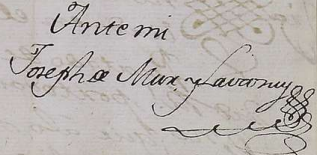 Antemi
Josepho Mux y Lavoruy